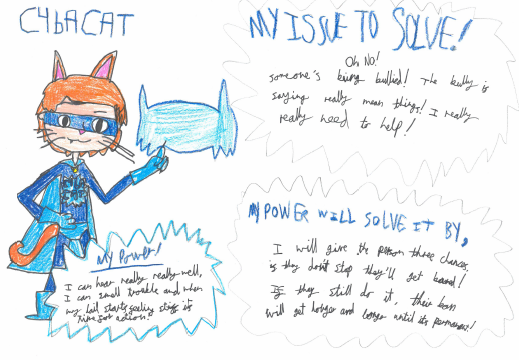 CYBACAT
MY ISSUE TO SOLVE!
Oh No!
someone's being bullied! The bully is
saying really mean things! I really
really need to help!
My Power!
I can hear really really well,
I can smell trouble and when
my tail starts feeling stiff it
time for action!
MY POWER WILL SOLVE IT BY,
I will give the person three chances,
is they don't stop they'll get banned!
If they still do it, their ban
will get longer and longer until its permanent!